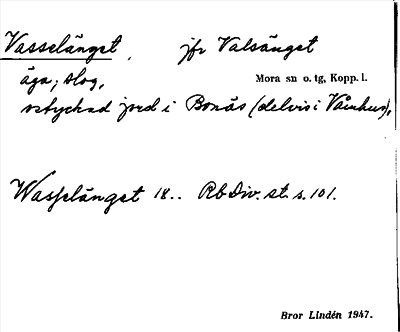 Vasselänget, jfr Valsänget
äga, slog,
Mora sn o. tg, Kopp. l.
ostyckad jord i Bonäs (delvis i Våmhus),
Wasselänget 18.. Rb Div. st. s. 101.
Bror Lindén 1947.